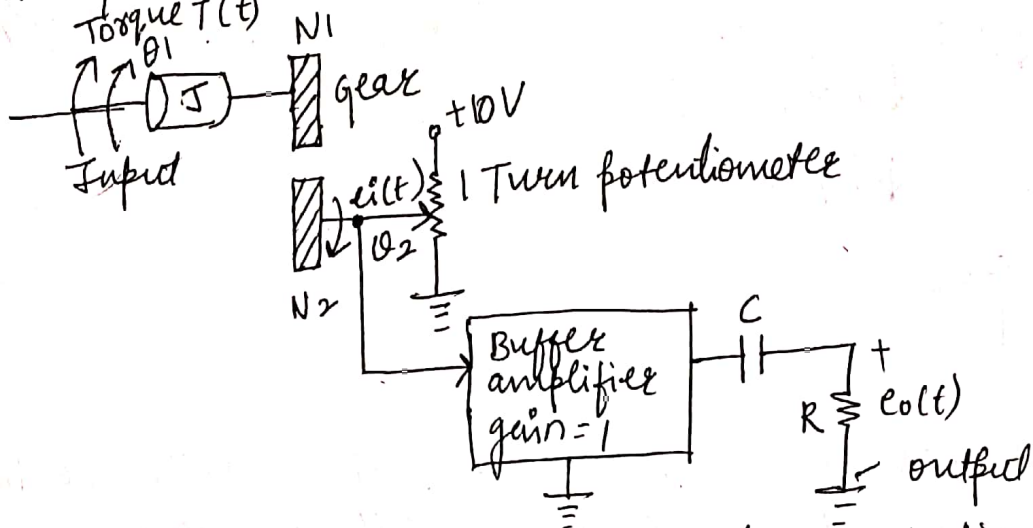 Torque T(t)
θ1
N1
J
gear
Input
+10V
ei(t)
1 Turn potentiometer
θ2
N2
Buffer
amplifier
gain = 1
C
+
R
eo(t)
output